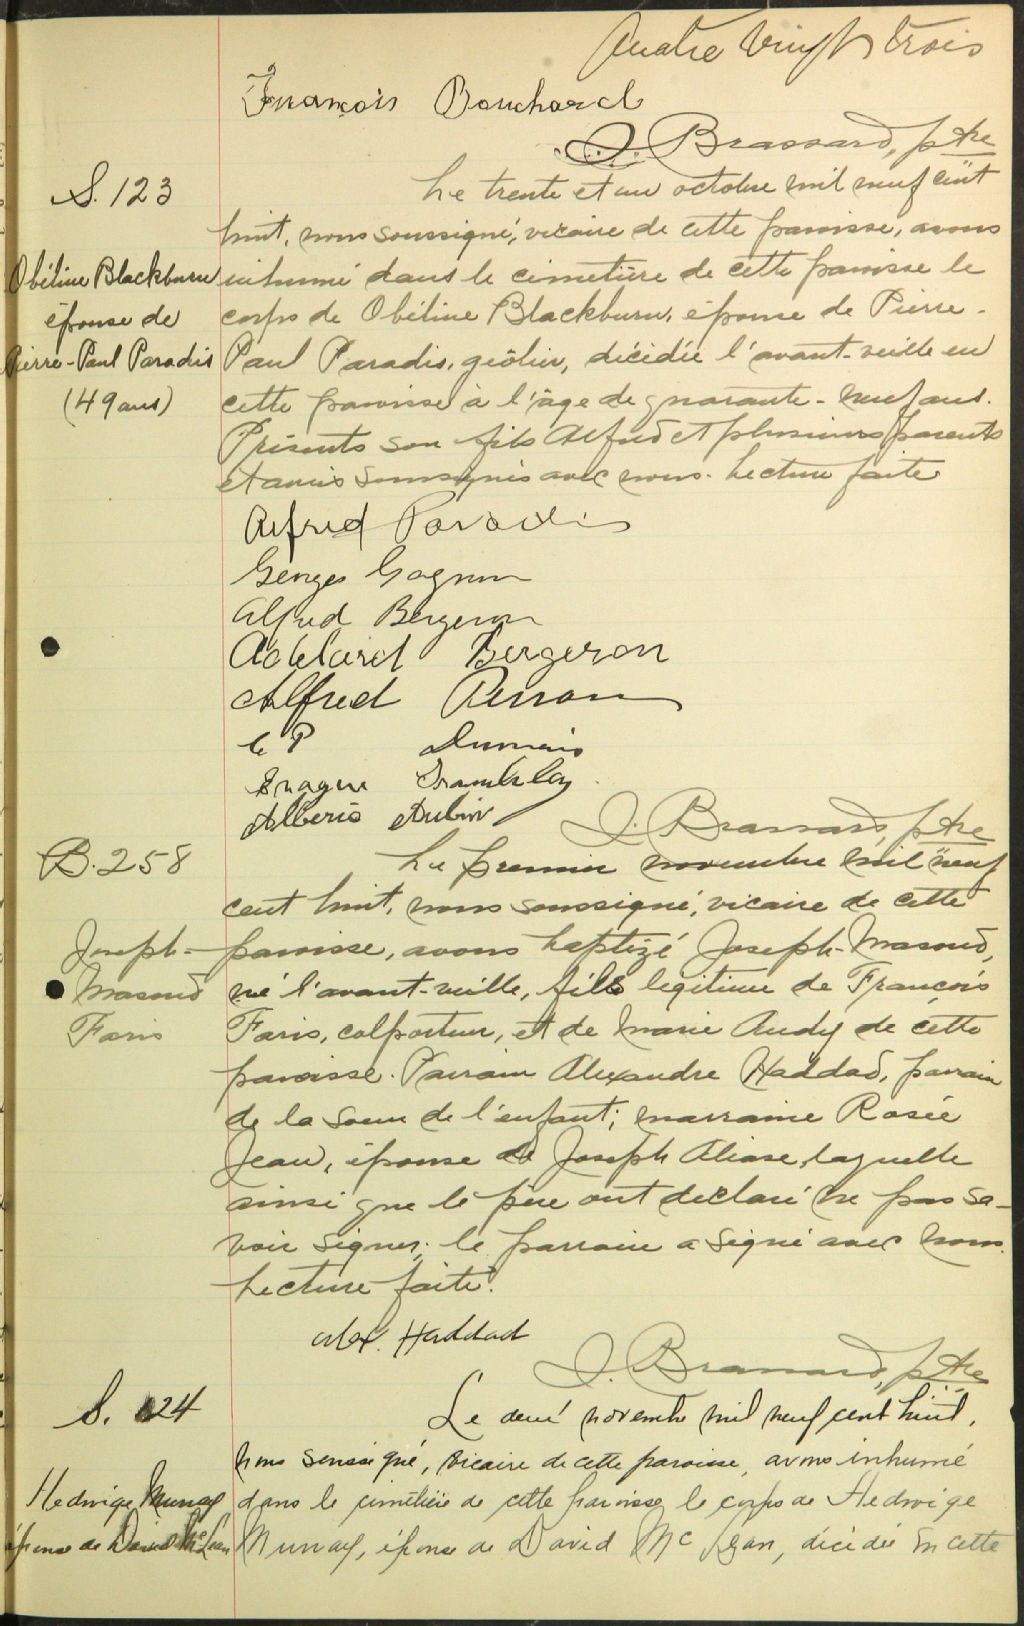 Quatre vingt trois
François Bouchard
J. Brassard, ptre
S. 123
Le trente et un octobre mil neuf cent
huit, nous soussigné, vicaire de cette paroisse, avons
Obéline Blackburn
inhumé dans le cimetière de cette paroisse le
épouse de
corps de Obéline Blackburn, épouse de Pierre-
Pierre-Paul Paradis
Paul Paradis, geôlier, décédée l'avant-veille en
(49 ans)
cette paroisse à l'âge de quarante-neuf ans.
Présents son fils Alfred et plusieurs parents
et amis soussignés avec nous. Lecture faite
Alfred Paradis
Georges Gagnon
Alfred Bergeron
Adélard Bergeron
Alfred Perron
Dumais
Tremblay
Albéric Aubin
J. Brassard, ptre
B. 258
Le premier novembre mil neuf
cent huit, nous soussigné, vicaire de cette
Joseph-
paroisse, avons baptizé Joseph-Masoud,
Masoud
né l'avant-veille, fils légitime de François
Faris
Faris, colporteur, et de Marie Audy de cette
paroisse. Parrain Alexandre Haddad, parrain
de la soeur de l'enfant; marraine Rosée
Jean, épouse de Joseph Aliase, laquelle
ainsi que le père ont declaré ne pas sa-
voir signer; le parrain a signé avec nous.
Lecture faite.
Alex. Haddad
J. Brassard, ptre
S. 124
Le deux novembre mil neuf cent huit,
nous soussigné, vicaire de cette paroisse, avons inhumé
Hedwige Murray
dans le cimetière de cette paroisse le corps de Hedwige
épouse de David McLean
Murray, épouse de David Mc Lean, décédée en cette